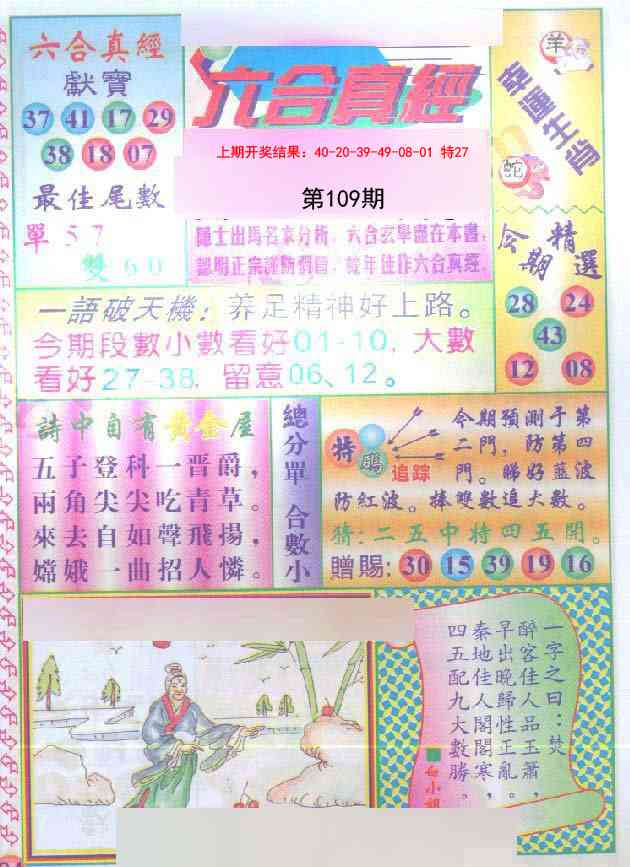 六合真經
獻寶
37 41 17 29
38 18 07
最佳尾數
單 5 7
雙 6 0
六合真經
上期开奖结果：40-20-39-49-08-01 特27
第109期
隱士出馬名家分析，六合玄學盡在本書，
認明正宗謹防假冒，
年佳作六合真經。
羊
幸運生肖
蛇
今期精選
28 24
43
12 08
一語破天機：养足精神好上路。
今期段數小數看好01-10，大數
看好27-38，留意06、12。
詩中自有黃金屋
五子登科一晋爵，
兩角尖尖吃青草。
來去自如聲飛揚，
嫦娥一曲招人憐。
總分單 合數小
特
追踪
今期預測于第
二門，防第四
門。睇好藍波
防紅波。捧雙數追大數。
猜：二五中特四五開。
贈賜：30 15 39 19 16
一字之曰：焚
醉客佳人品玉蕭，
早出晚歸性正亂，
秦地佳人閣閣寒，
四五配九大數勝。
白小姐